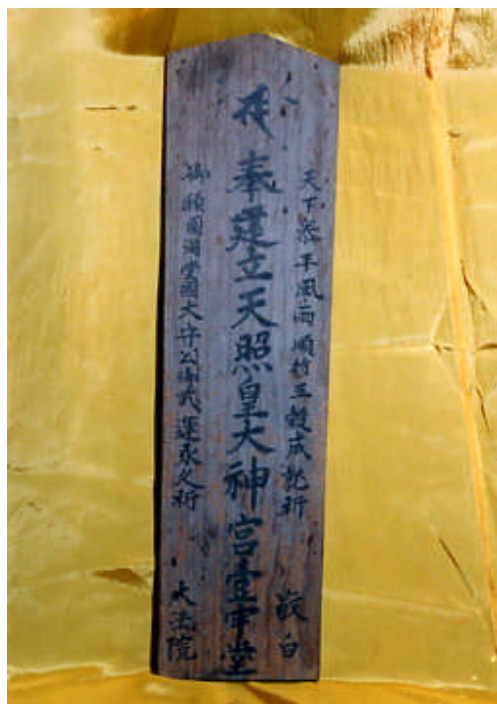 天下泰平風雨順時五穀成就祈 敬白
奉建立天照皇大神宮壹宇堂
御願圓滿當國大守公御武運永久祈 大法院